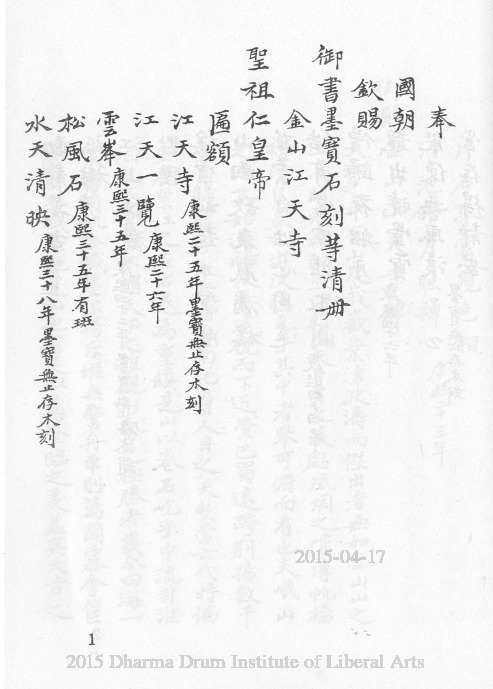 奉
國朝
欽賜
御書墨寶石刻等清册
金山江天寺
聖祖仁皇帝
匾額
江天寺 康熙二十五年墨寶無止存木刻
江天一覽 康熙二十六年
雲峯 康熙三十五年
松風石 康熙三十五年有班
水天清映 康熙三十八年墨寶無止存木刻
2015-04-17
1
2015 Dharma Drum Institute of Liberal Arts